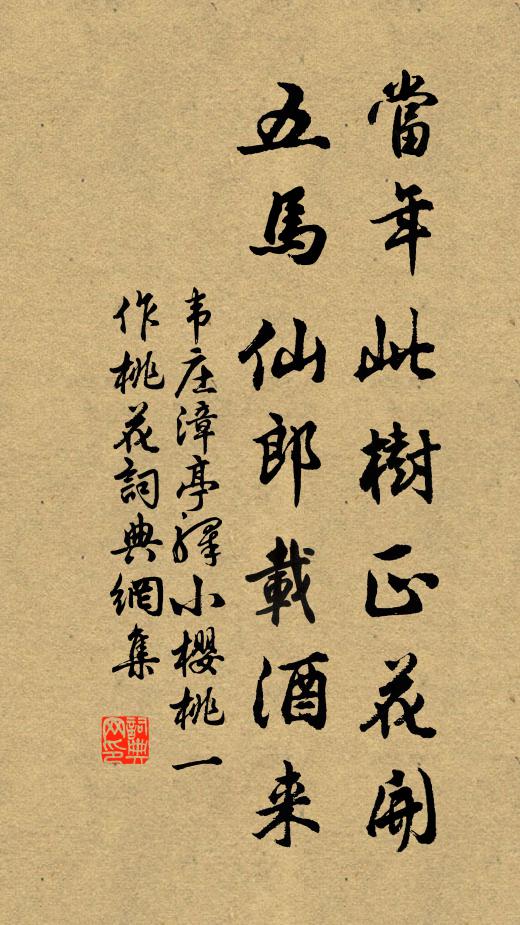 當年此樹正花開
五馬仙郎載酒来
韦庄漳亭驿小樱桃一
作桃花詞典網集
詞典网印